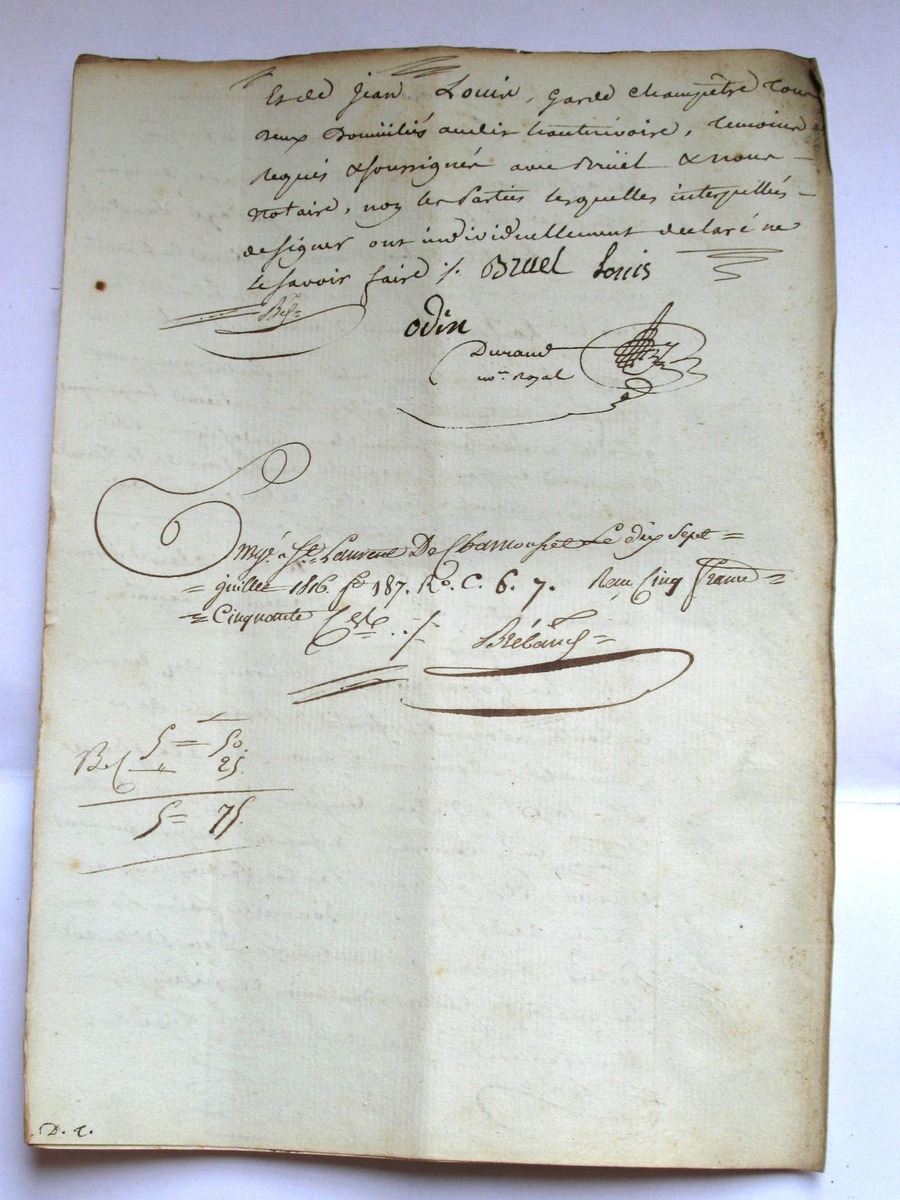 Et de Jean Louis, Garde champêtre tous
deux Domiciliés audit hauterivoire, temoins
requis & soussignés avec Bruël & nous
Notaire, non les Parties lesquelles interpellées
de signer ont individuellement declaré ne
le savoir faire ./. Bruel Louis
odin
Durand
no.re Royal
Enregé. a St. Laurent De Chamousset Le dix Sept
juillet 1816. fo 187. Ro. C. 6. 7. Reçu Cinq francs
Cinquante Cmes ./.
5 = 50.
25.
5 = 75.
D. r.